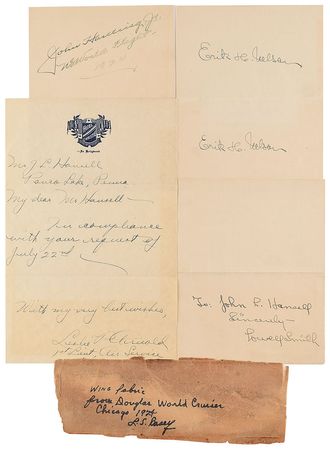 John Harding, Jr.
World Flight
1924
Erik H. Nelson
Erik H. Nelson
Mr J L Hansell
Penna
My dear Mr Hansell –
In compliance
with your request of
July 22nd –
With my very best wishes,
Leslie P Arnold
1st Lieut, Air Service
To: John L. Hansell
Sincerely –
Lowell Smith
Wing Fabric
from Douglas World Cruiser
Chicago 1924
L.S. Casey